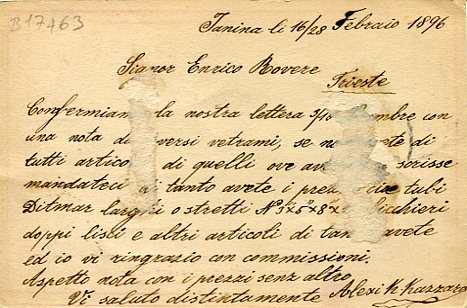 B17463
Janina li 16/28 Febraio 1896
Signor Enrico Rovere
Trieste
Confermiamo la nostra lettera
una nota di versi vetrami, se
tutti artico di quelli ove
mandateci di tanto avete i tubi
Ditmar larghi o stretti No 3"x5"x8" bicchieri
doppi lisci e altri articoli di avete
ed io vi ringrazio con commissioni.
Aspetto nota con i prezzi senz altro
Vi saluto distintamente Alexi K